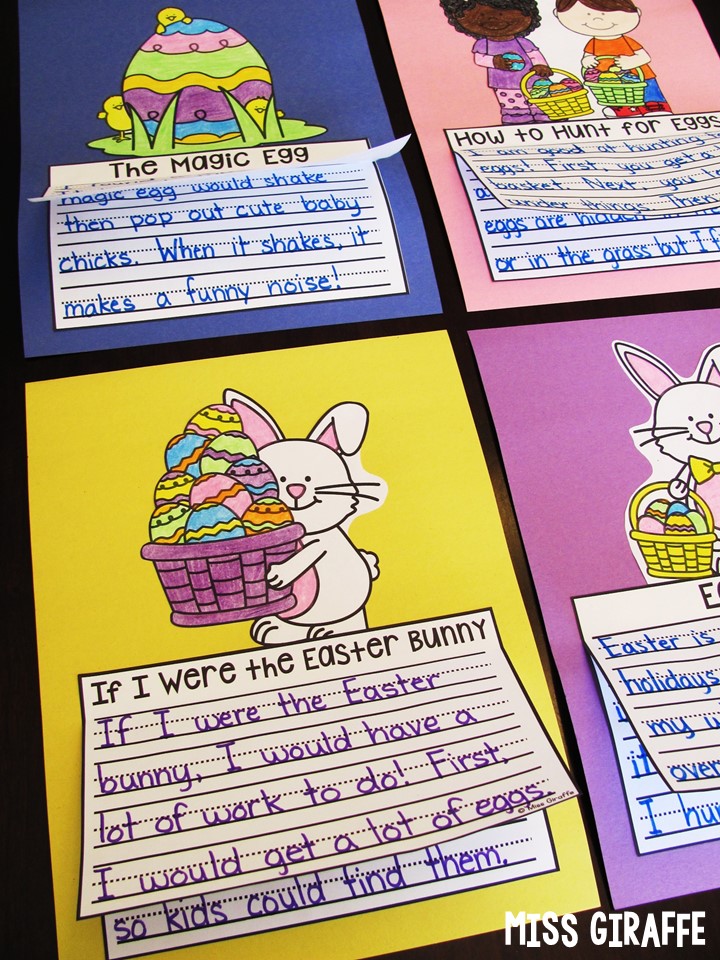 The Magic Egg
magic egg would shake
then pop out cute baby
chicks. When it shakes, it
makes a funny noise!
How to Hunt for Eggs
I am good at hunting
eggs! First, you get a
basket. Next, you
under things. Then
eggs are
or in the grass but I
If I Were the Easter Bunny
If I were the Easter
bunny, I would have a
lot of work to do! First,
I would get a lot of eggs.
© Miss Giraffe
so kids could find them.
Easter is
holidays
my
over
I
MISS GIRAFFE